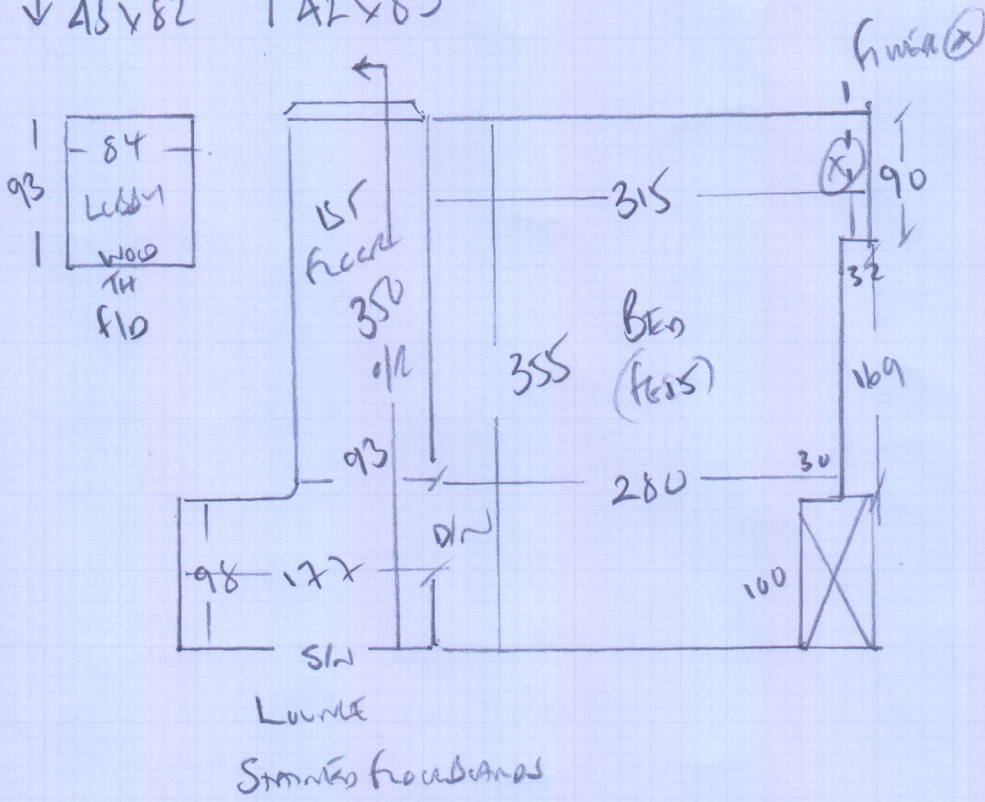 ↓ 43 x 82 ↑ 42 x 83
93
84
LOBBY
WOOD
TH
F/D
1ST
FLOOR
350
O/R
315
X
90
32
BED
355
169
93
280
30
D/N
98
177
100
S/N
LOUNGE
STAINED FLOORBOARDS